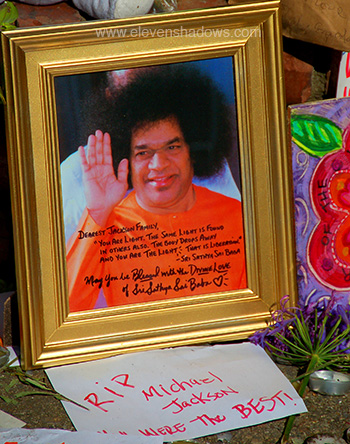 www.elevenshadows.com
DEAREST JACKSON FAMILY,
"YOU ARE LIGHT. THE SAME LIGHT IS FOUND
IN OTHERS ALSO. THE BODY DROPS AWAY
AND YOU ARE THE LIGHT; THAT IS LIBERATION"
- SRI SATHYA SAI BABA
MAY YOU BE BLESSED WITH THE DIVINE LOVE
OF SRI SATHYA SAI BABA
OF THE
RIP MICHAEL
JACKSON
WERE THE BEST!